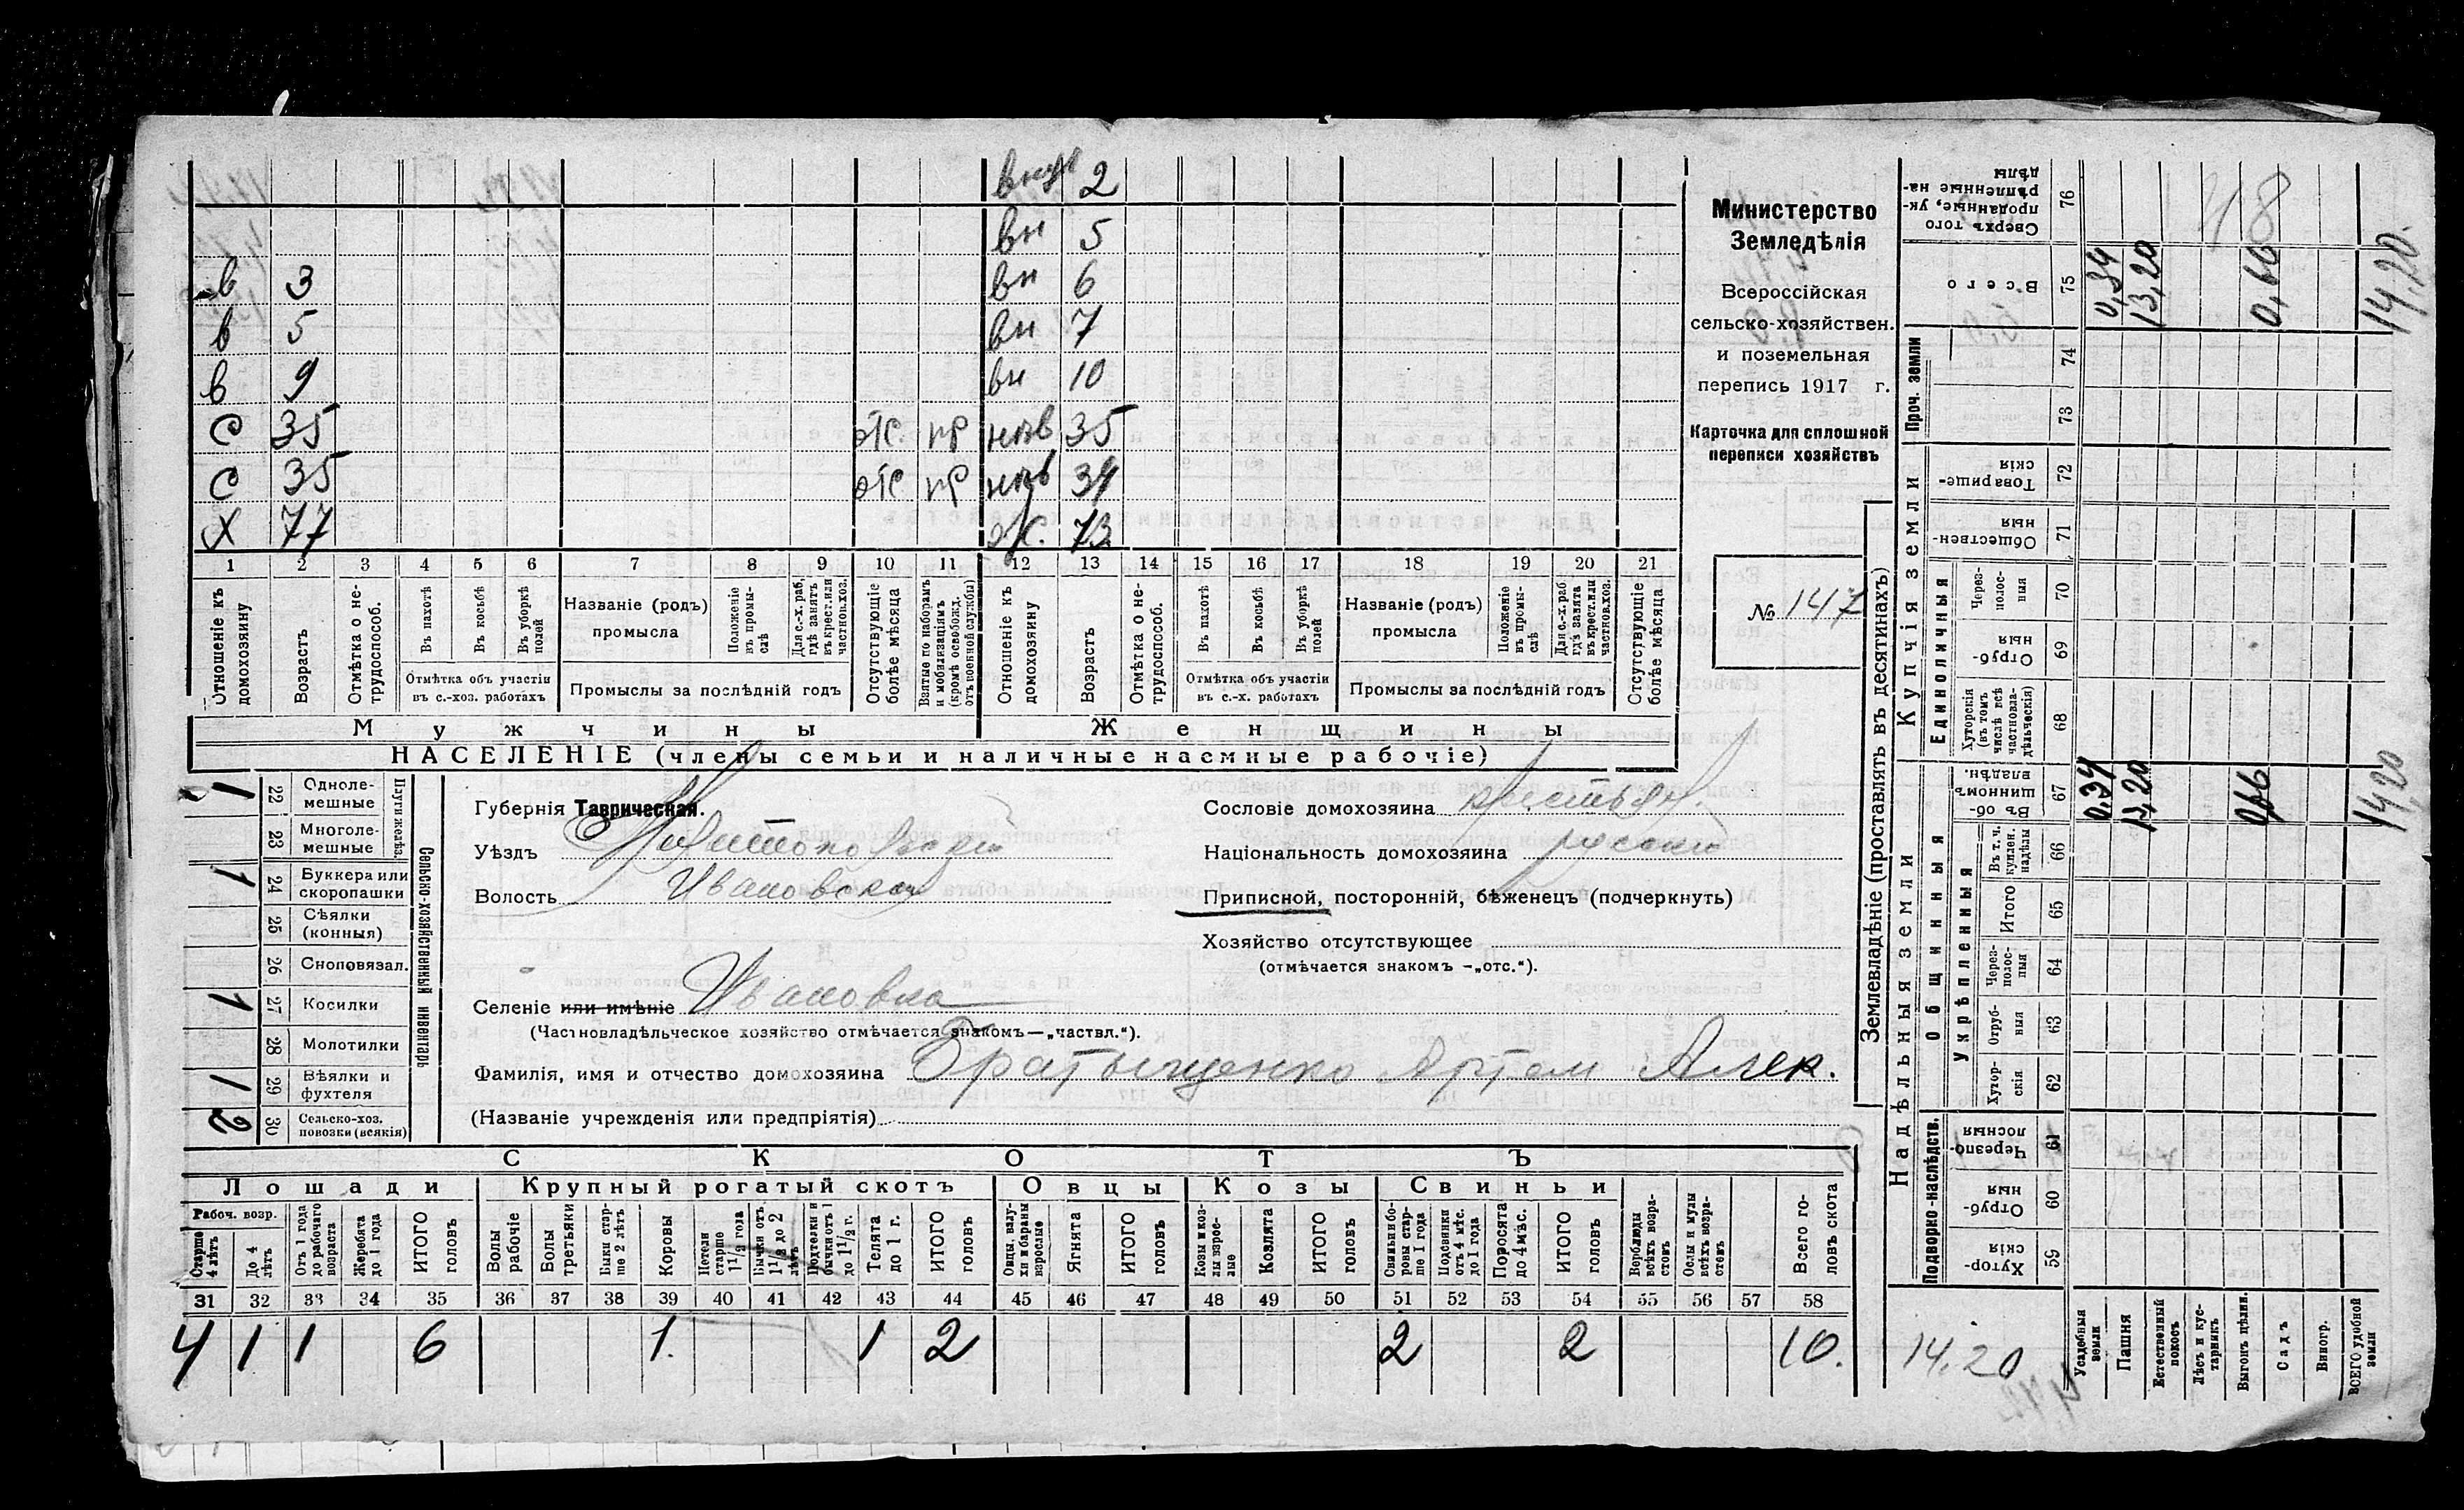 внук 2
вн 5
в 3 вн 6
в 5 вн 7
в 9 вн 10
С 35 отс. пр невѣ 35
С 35 отс пр невѣ 34
Х 77 ж. 73
1 2 3 4 5 6 7 8 9 10 11 12 13 14 15 16 17 18 19 20 21
Отношеніе къ домохозяину
Возрастъ
Отмѣтка о нетрудоспособ.
Въ пахотѣ
Въ косьбѣ
Въ уборкѣ полей
Отмѣтка объ участіи
въ с.-хоз. работахъ
Названіе (родъ)
промысла
Положеніе въ промыслѣ
Для с.-х. раб, гдѣ занятъ въ крест. или частнов. хоз.
Промыслы за послѣдній годъ
Отсутствующіе болѣе мѣсяца
Взятые по наборамъ и мобилизаціямъ (кромѣ освобожд. отъ военной службы)
Отношеніе къ домохозяину
Возрастъ
Отмѣтка о нетрудоспособ.
Въ пахотѣ
Въ косьбѣ
Въ уборкѣ полей
Отмѣтка объ участіи
въ с.-х. работахъ
Названіе (родъ)
промысла
Положеніе въ промыслѣ
Для с.-х. раб гдѣ занята въ крест. или частнов. хоз.
Промыслы за послѣдній годъ
Отсутствующіе болѣе мѣсяца
Мужчины Женщины
НАСЕЛЕНІЕ (члены семьи и наличные наемные рабочіе)
Министерство
Земледѣлія
Всероссійская
сельско-хозяйствен.
и поземельная
перепись 1917 г.
Карточка для сплошной
переписи хозяйствъ
№ 147
Сельско-хозяйственный инвентарь
Плуги желѣз.
1 22 Однолемешные
23 Многолемешные
1 24 Буккера или скоропашки
25 Сѣялки (конныя)
26 Сноповязал.
1 27 Косилки
28 Молотилки
1 29 Вѣялки и фухтеля
2 30 Сельско-хоз. повозки (всякія)
Губернія Таврическая.
Уѣздъ Мелитопольскій
Волость Ивановская
Селеніе или имѣніе Ивановка
(Частновладѣльческое хозяйство отмѣчается знакомъ—„частвл.“).
Фамилія, имя и отчество домохозяина Братыщенко Артем Алек.
(Названіе учрежденія или предпріятія)
Сословіе домохозяина крестьян.
Національность домохозяина русский
Приписной, посторонній, бѣженецъ (подчеркнуть)
Хозяйство отсутствующее
(отмѣчается знакомъ —„отс.“).
СКОТЪ
Лошади Крупный рогатый скотъ Овцы Козы Свиньи
Рабоч. возр.
Старше 4 лѣтъ
До 4 лѣтъ
Отъ 1 года до рабочаго возраста
Жеребята до 1 года
ИТОГО головъ
Волы рабочіе
Волы третьяки
Быки старше 2 лѣтъ
Коровы
Нетели старше 1½ года
Бычки отъ 1½ до 2 лѣтъ
Подтелки и бычки отъ 1 до 1½ г.
Телята до 1 г.
ИТОГО головъ
Овцы, валухи и бараны взрослые
Ягнята
ИТОГО головъ
Козы и козлы взрослые
Козлята
ИТОГО головъ
Свиньи и боровы старше 1 года
Подсвинки отъ 4 мѣс. до 1 года
Поросята до 4 мѣс.
ИТОГО головъ
Верблюды всѣхъ возрастовъ
Ослы и мулы всѣхъ возрастовъ
Всего головъ скота
31 32 33 34 35 36 37 38 39 40 41 42 43 44 45 46 47 48 49 50 51 52 53 54 55 56 57 58
4 1 1 6 1. 1 2 2 2 10.
Землевладѣніе (проставлять въ десятинахъ)
Надѣльныя земли Купчія земли Проч. земли
Подворно-наслѣдств. Общинныя Единоличныя
Укрѣпленныя
59 Хуторскія
60 Отрубныя
61 Черезполосныя
62 Хуторскія
63 Отрубныя
64 Черезполосныя
65 Итого
66 Въ т. ч. куплен. надѣлы
67 Въ общинномъ владѣн.
68 Хуторскія (въ томъ числѣ всѣ частновладѣльческія)
69 Отрубныя
70 Черезполосныя
71 Общественныя
72 Товарищескія
73
74
75 Всего
76 Сверхъ того проданные, укрѣпленные надѣлы
Усадебныя земли
Пашня
Естественный покосъ
Лѣсъ и кустарникъ
Выгонъ цѣлин.
Садъ
Виногр.
ВСЕГО удобной земли
0,34 13,20 0,66 14,20
0,34 13,20 0,66 14,20.
48
14.20